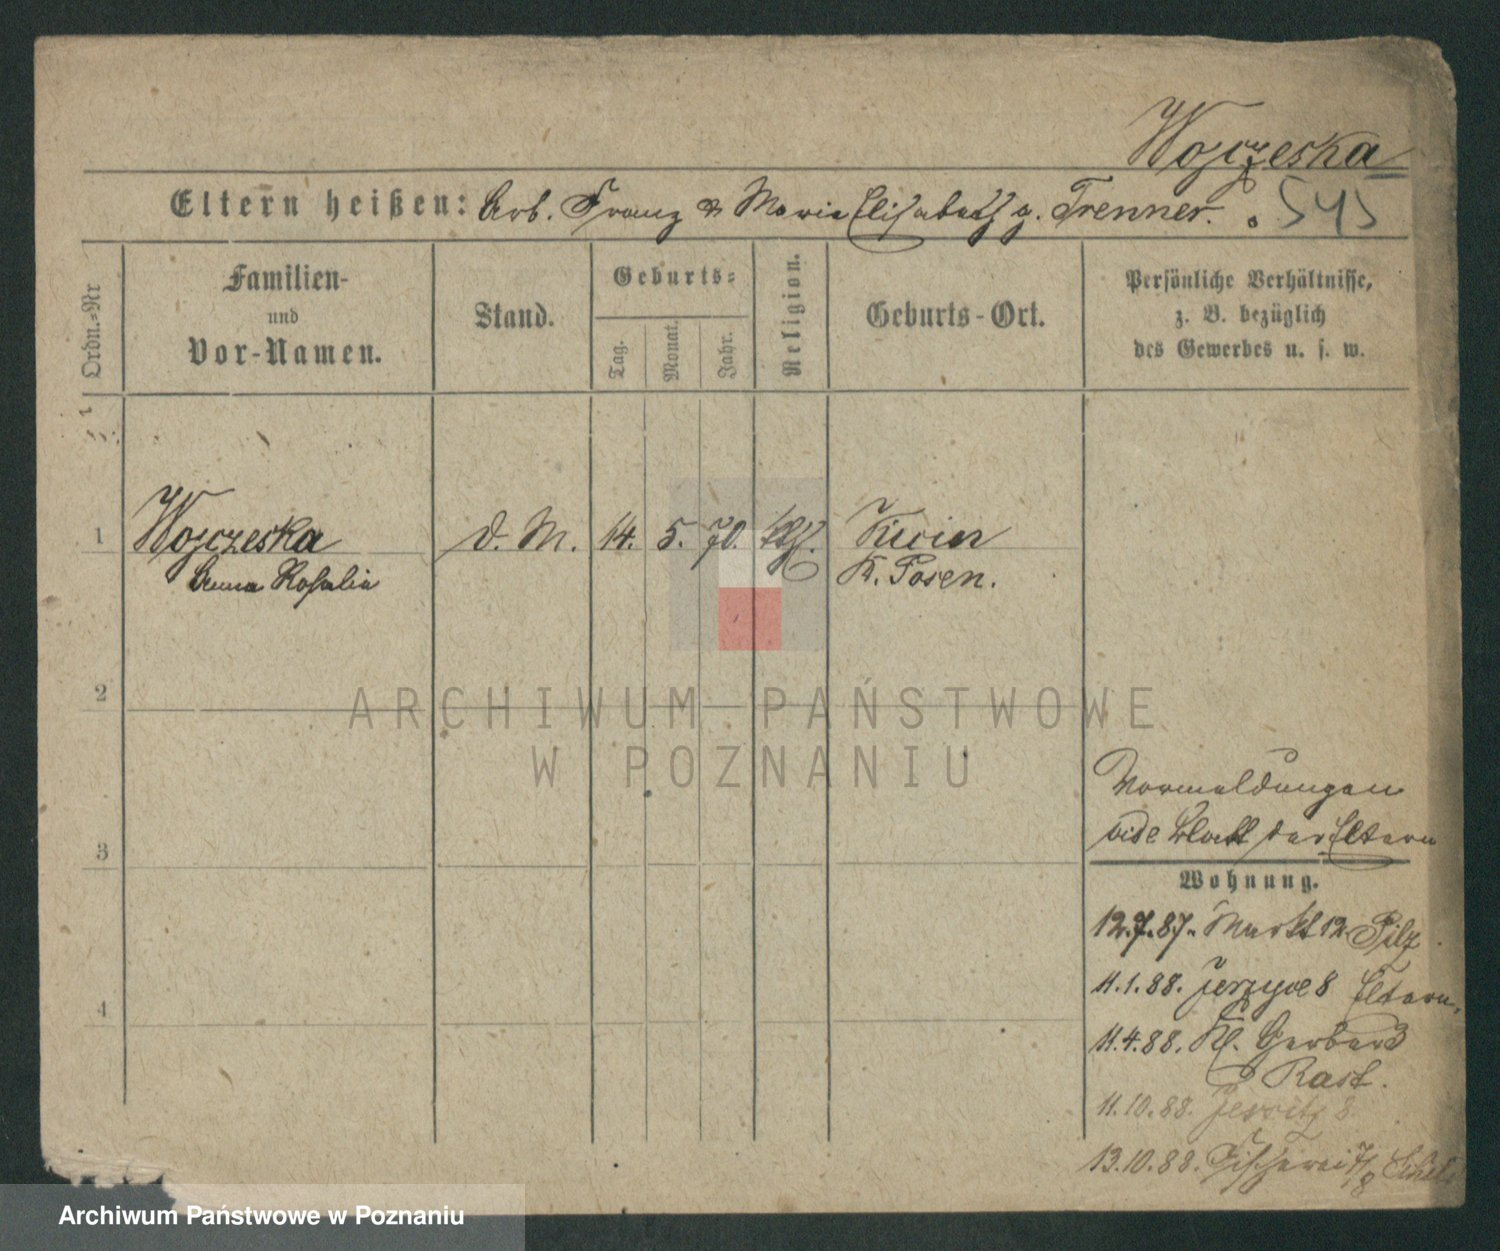 Wojczeska
Eltern heißen: Arb. Franz & Maria Elisabeth g. Trenner. 545
Ordn.-Nr
Familien-
und
Vor-Namen.
Stand.
Geburts-
Tag.
Monat.
Jahr.
Religion.
Geburts-Ort.
Persönliche Verhältnisse,
z. B. bezüglich
des Gewerbes u. s. w.
1 Wojczeska d. M. 14. 5. 70. kth. Kicin
Anna Rosalia K. Posen.
2
ARCHIWUM PAŃSTWOWE
W POZNANIU
Vormeldungen
vide Blatt der Eltern
3
Wohnung.
12.7.87. Markt 12 Pilz
11.1.88. Jerzyce 8 Eltern,
4
11.4.88. Kl. Gerber 3
Rast.
11.10.88. Jersitz 8
13.10.88. Fischerei 7/8
Archiwum Państwowe w Poznaniu